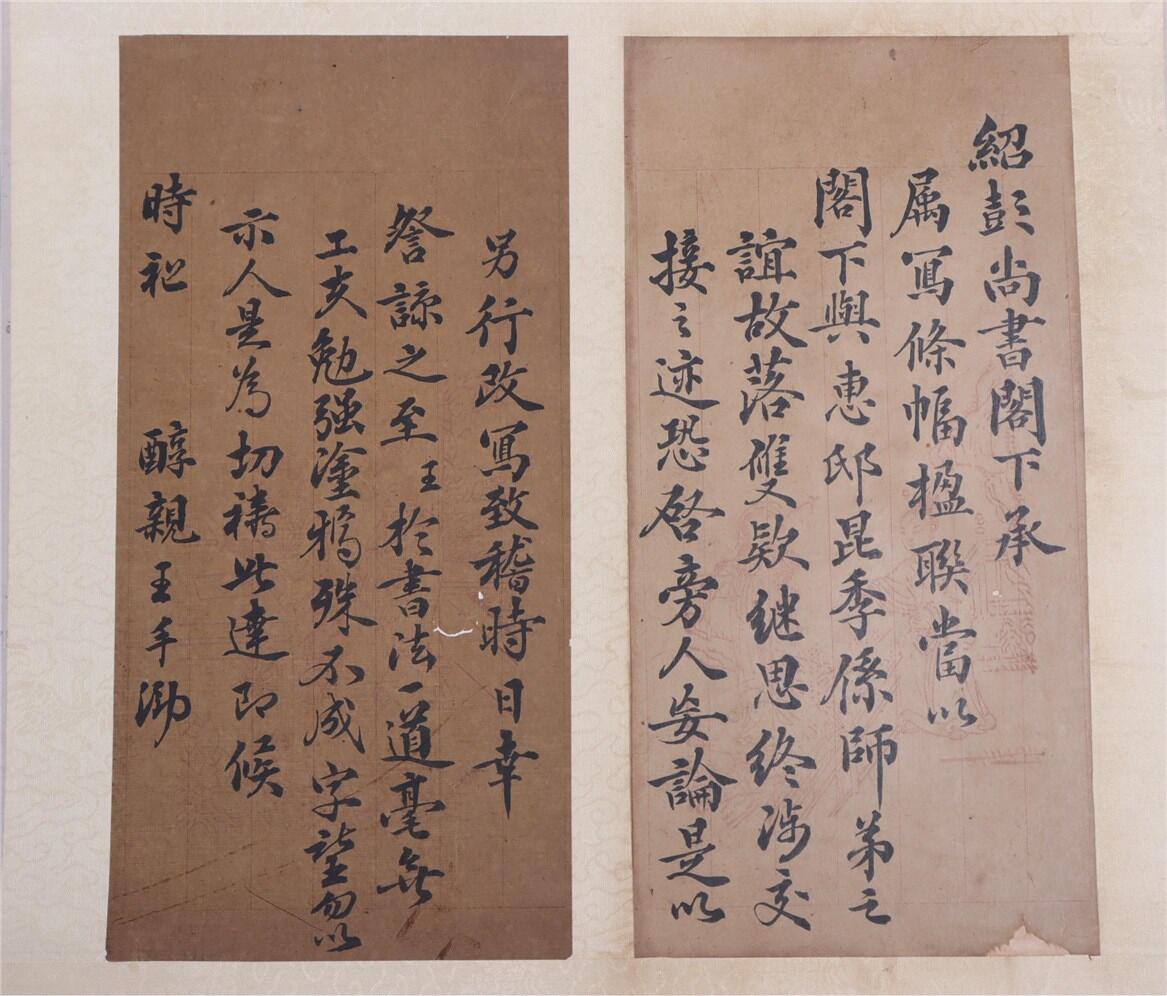 紹彭尚書閣下承
属寫條幅楹聯當以
閣下與惠邸昆季係師弟之
誼故落雙欵継思终涉交
接之迹恐啓旁人妄論是以
另行改寫致稽時日幸
詧諒之至王於書法一道毫無
工夫勉强塗鴉殊不成字望勿以
示人是為切禱此達即候
時祉 醇親王手泐